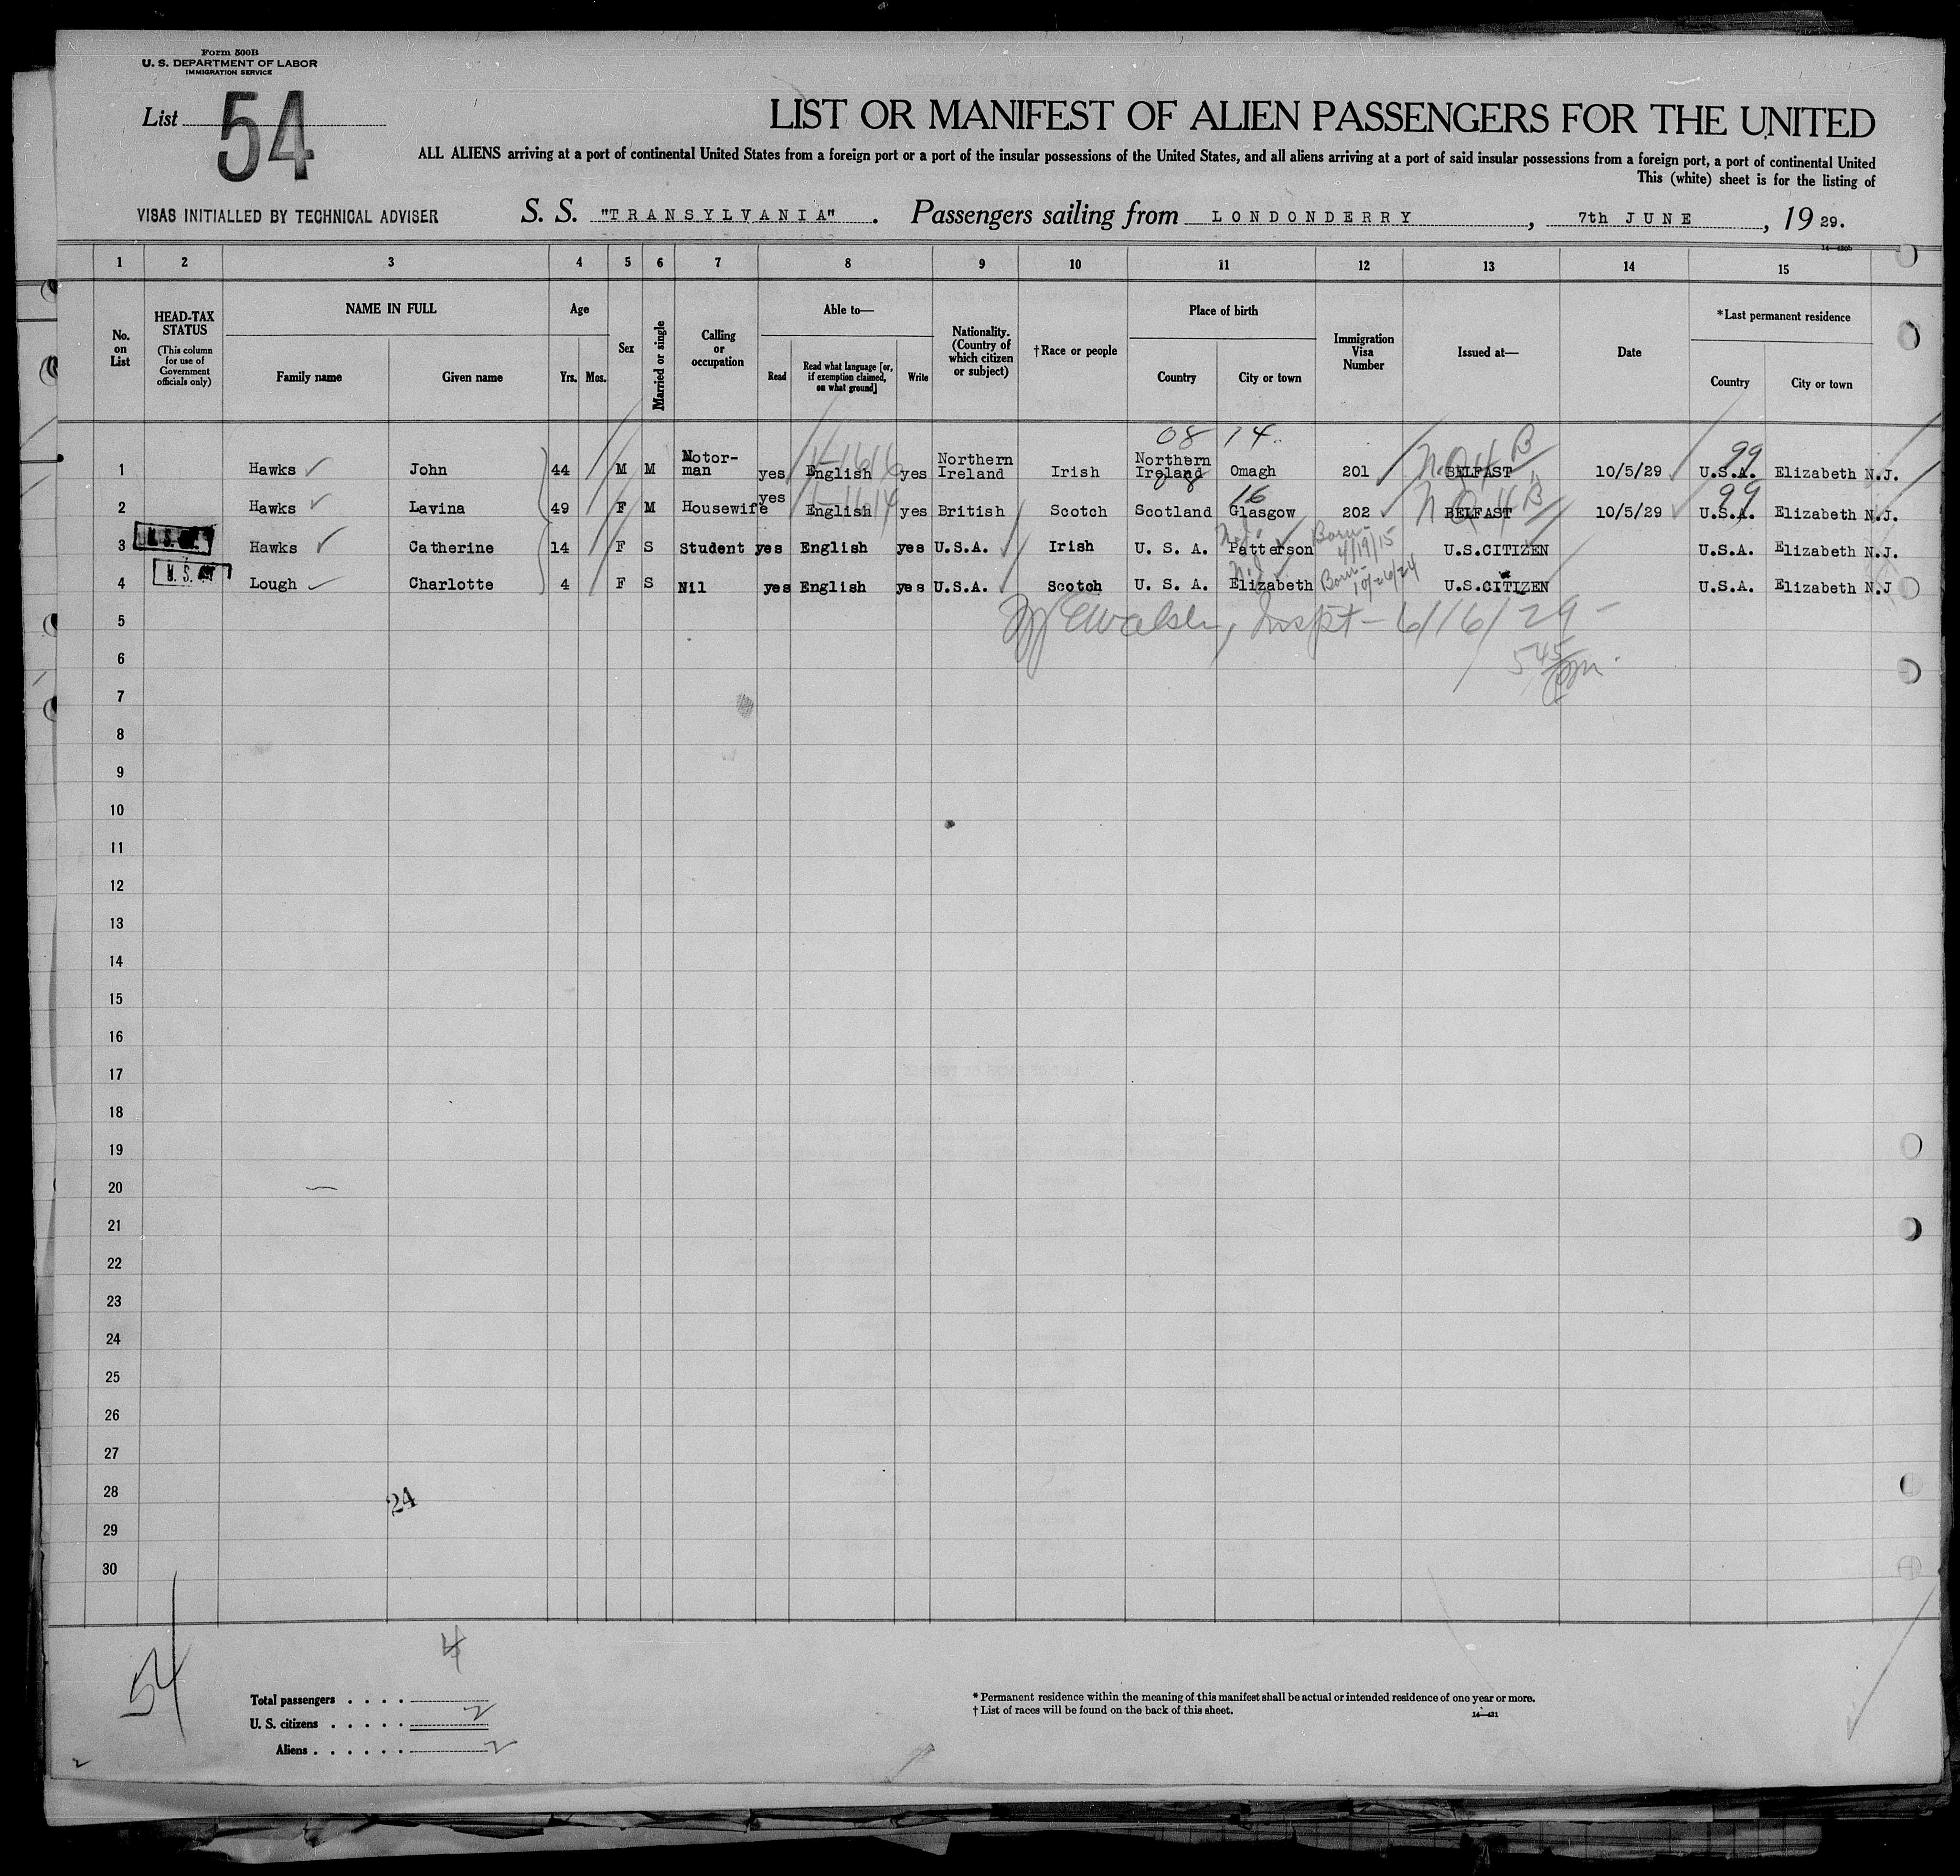 Form 500B
U. S. DEPARTMENT OF LABOR
IMMIGRATION SERVICE
List 54
LIST OR MANIFEST OF ALIEN PASSENGERS FOR THE UNITED
ALL ALIENS arriving at a port of continental United States from a foreign port or a port of the insular possessions of the United States, and all aliens arriving at a port of said insular possessions from a foreign port, a port of continental United
This (white) sheet is for the listing of
VISAS INITIALLED BY TECHNICAL ADVISER
S. S. "TRANSYLVANIA". Passengers sailing from LONDONDERRY, 7th JUNE, 19 29.
14—430b
1 2 3 4 5 6 7 8 9 10 11 12 13 14 15
No. on List
HEAD-TAX STATUS (This column for use of Government officials only)
NAME IN FULL
Family name Given name
Age
Yrs. Mos.
Sex
Married or single
Calling or occupation
Able to—
Read Read what language [or, if exemption claimed, on what ground] Write
Nationality. (Country of which citizen or subject)
†Race or people
Place of birth
Country City or town
Immigration Visa Number
Issued at—
Date
*Last permanent residence
Country City or town
08 14
1 Hawks John 44 M M Motor-man yes English yes Northern Ireland Irish Northern Ireland Omagh 201 BELFAST 10/5/29 U.S.A. Elizabeth N.J.
99
16 99
2 Hawks Lavina 49 F M Housewife yes English yes British Scotch Scotland Glasgow 202 BELFAST 10/5/29 U.S.A. Elizabeth N.J.
N.J. Born 4/19/15
3 Hawks Catherine 14 F S Student yes English yes U.S.A. Irish U. S. A. Patterson U.S.CITIZEN U.S.A. Elizabeth N.J.
N.J. Born 10/26/24
4 Lough Charlotte 4 F S Nil yes English yes U.S.A. Scotch U. S. A. Elizabeth U.S.CITIZEN U.S.A. Elizabeth N.J
5 Inspt - 6/16/29
6 545
7
8
9
10
11
12
13
14
15
16
17
18
19
20
21
22
23
24
25
26
27
28
24
29
30
54
4
Total passengers . . . .
U. S. citizens . . . . . 2
Aliens . . . . . . 2
* Permanent residence within the meaning of this manifest shall be actual or intended residence of one year or more.
† List of races will be found on the back of this sheet.
14—431